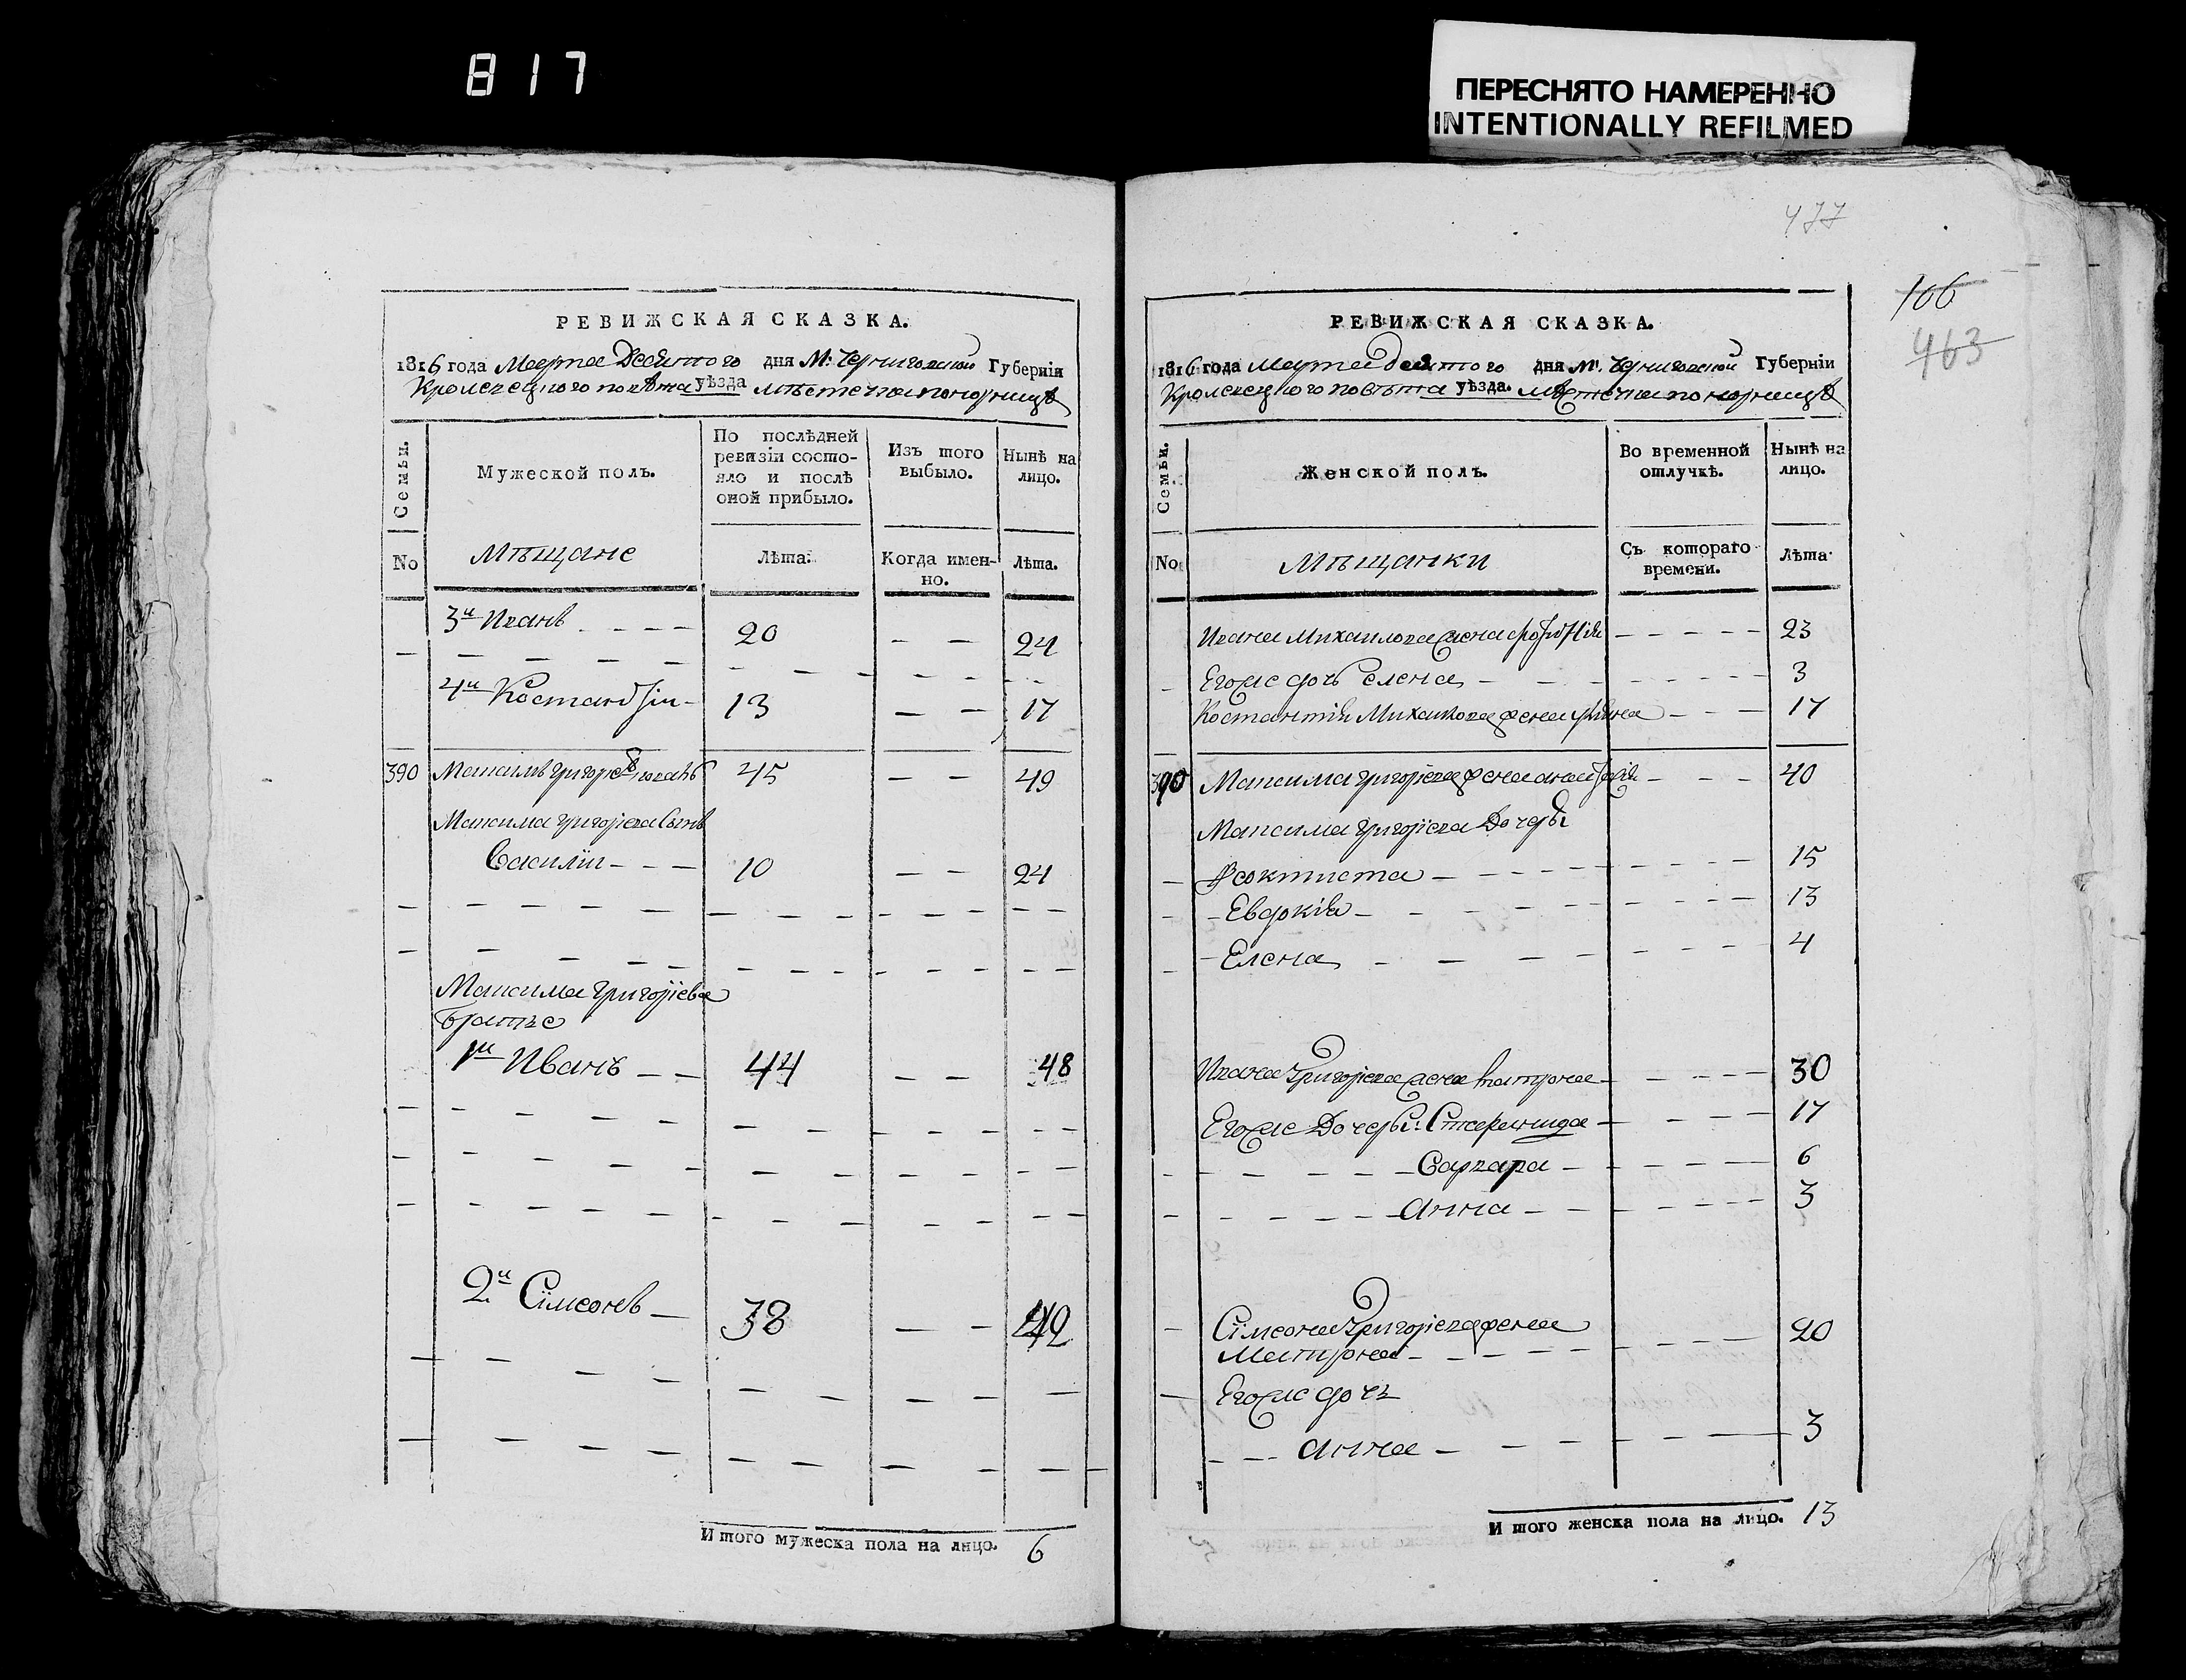 817
ПЕРЕСНЯТО НАМЕРЕННО
INTENTIONALLY REFILMED
477
106
463
РЕВИЖСКАЯ СКАЗКА.
1816 года Марта Десятого дня М: Черниговской Губернїи
Кролевецкого повѣта уѣзда мѣстечка понорницѣ
Семьи.
Мужеской полъ.
По послѣдней ревизїи состояло и послѣ оной прибыло.
Изъ того выбыло.
Нынѣ на лицо.
No
Мѣщане
Лѣта.
Когда именно.
Лѣта.
3й Иванъ - - - - 20 - - 24
4й Костантїи - 13 - - 17
390 Максимъ григорїевъ 45 - - 49
Максима григорїева сынъ
Василїи - - - 10 - - 24
Максима григорїева
братъе
1й Иванъ - - 44 - - 48
2й Сїмеонъ - 38 - - 42
И того мужеска пола на лицо. 6
РЕВИЖСКАЯ СКАЗКА.
1816 года Марта десятого дня М. Черниговской Губернїи
Кролевецкого повѣта уѣзда. мѣстечка понорницѣ
Семьи.
Женской полъ.
Во временной отлучкѣ.
Нынѣ на лицо.
No
Мѣщанки
Съ котораго времени.
Лѣта
Ивана Михаилова жена - - - - - 23
Егоже дочъ Елена - - - 3
Костантїя Михаилова жена - - - 17
390 Максима григорїева жена - - - 40
Максима григорїева Дочерѣ
Феоктиста - - - - 15
- Евдокїя - - - - 13
- Елена - - - - 4
Ивана григорїева жена - - - - 30
Егоже Дочерѣ: - - - - 17
Варвара - - - - 6
Анна - - - - 3
Сїмеона григорїева жена
Матрона - - - - 20
Егоже дочъ
- - - Анна - - - - 3
И того женска пола на лицо. 13